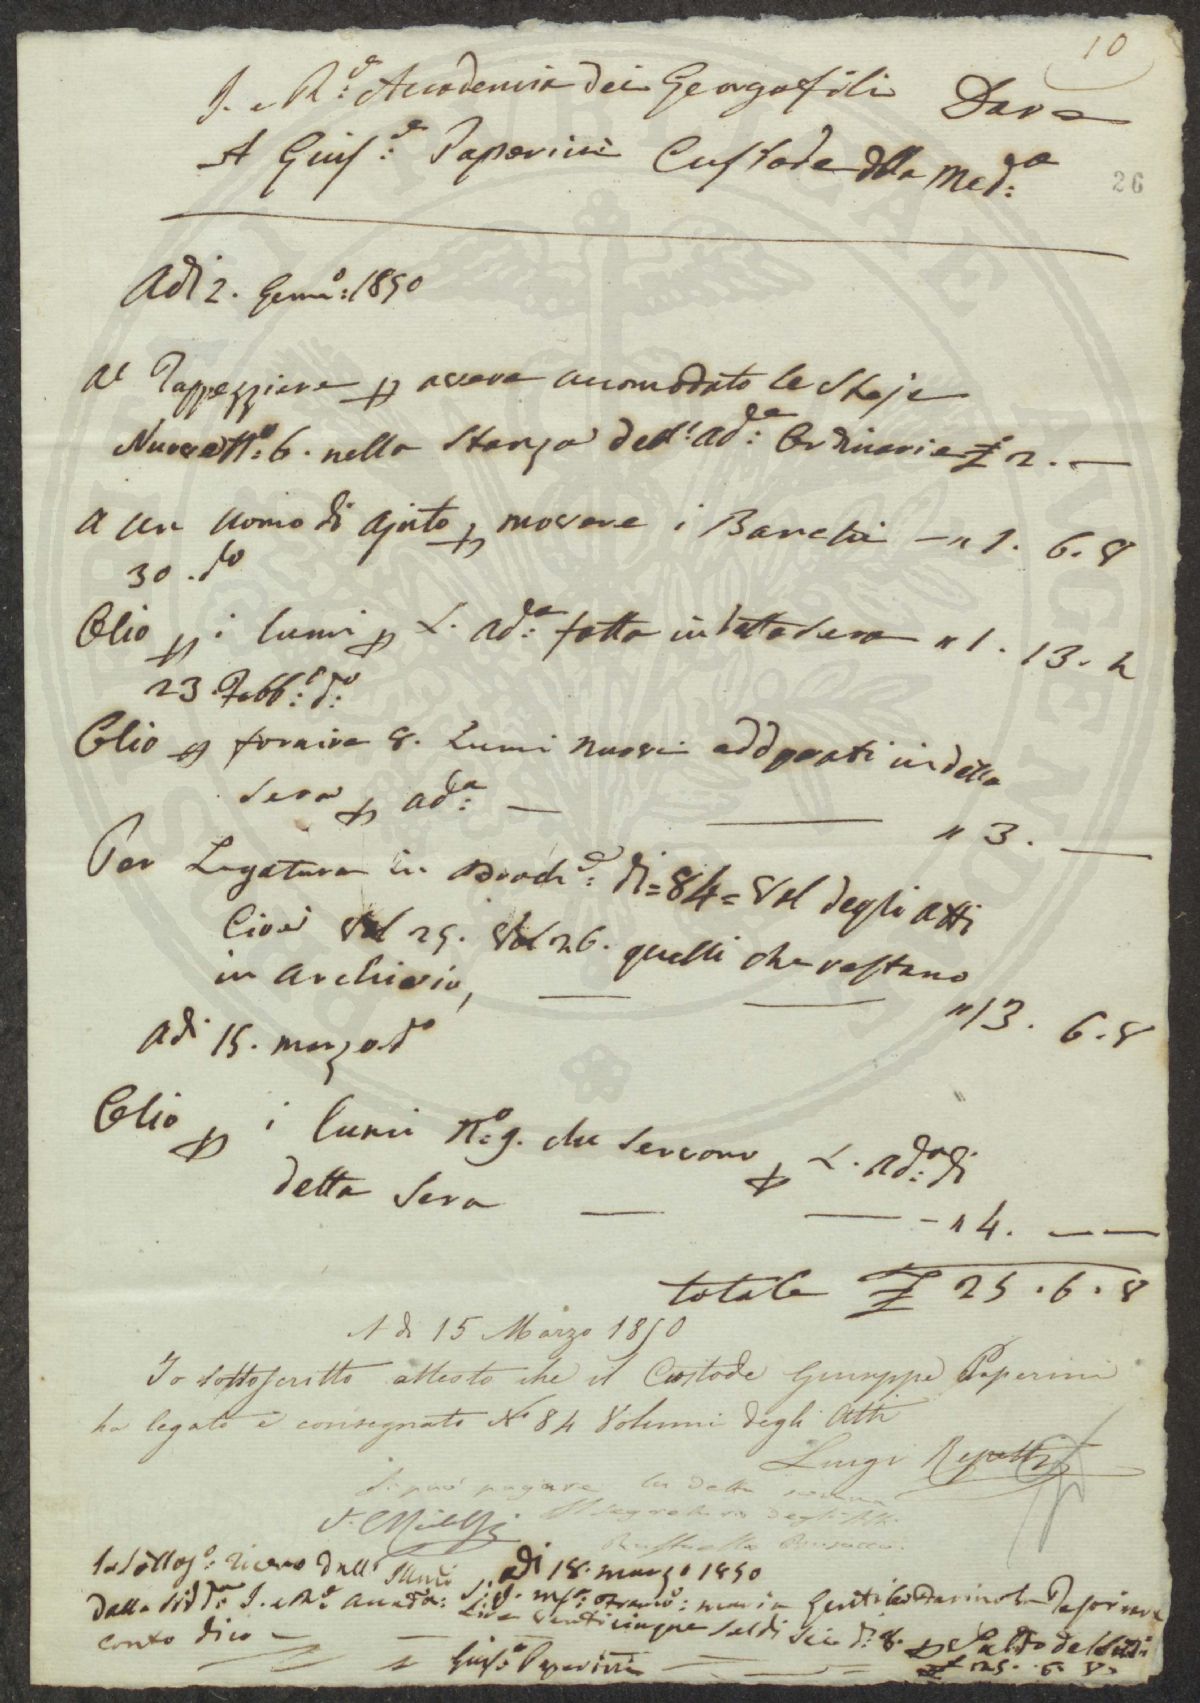 10
I. e R.e Accademia dei Georgofili Dare
A Gius.e Paperini Custode della Med.a
26
Adi 2. Genn.o: 1850
Al Tappezziere p avere accomodato le Stoje
Num.o 6. nella Stanza dell' ad.e Ordinarie £ 2. —
A un uomo di ajuto p movere i Banchi — " 1. 6. 8
30. d.o
Olio p i lumi p L. ad.a fatta in detta sera " 1. 13. 4
23 Febb.o d.o
Olio p fornire 8. Lumi nuovi addoprati in detta
sera p ad.a — — " 3. —
Per Legatura in Broch.e di = 84 = Vol degli Atti
Cioè Vol 25. Vol 26. quelli che restano
in Archivio, — — " 13. 6. 8
Adi 15. marzo d.o
Olio p i lumi N.o 9. che servono p L. ad.a di
detta Sera — — " 4. — —
totale £ 25. 6. 8
A di 15 Marzo 1850
Io sottoscritto attesto che il Custode Giuseppe Paperini
ha legato e consegnato N.o 84 Volumi degli Atti
Luigi
Si può pagare la detta somma
Il Segretario degli Atti
Io Sottos.o ricevo dall'
adi 18. marzo 1850
dalla Sud.a I. e R.e Accad.a:
Lire Venticinque Soldi Sei d. 8. p Saldo del
conto dico — £ 25. 6. 8.
Gius.e Paperini